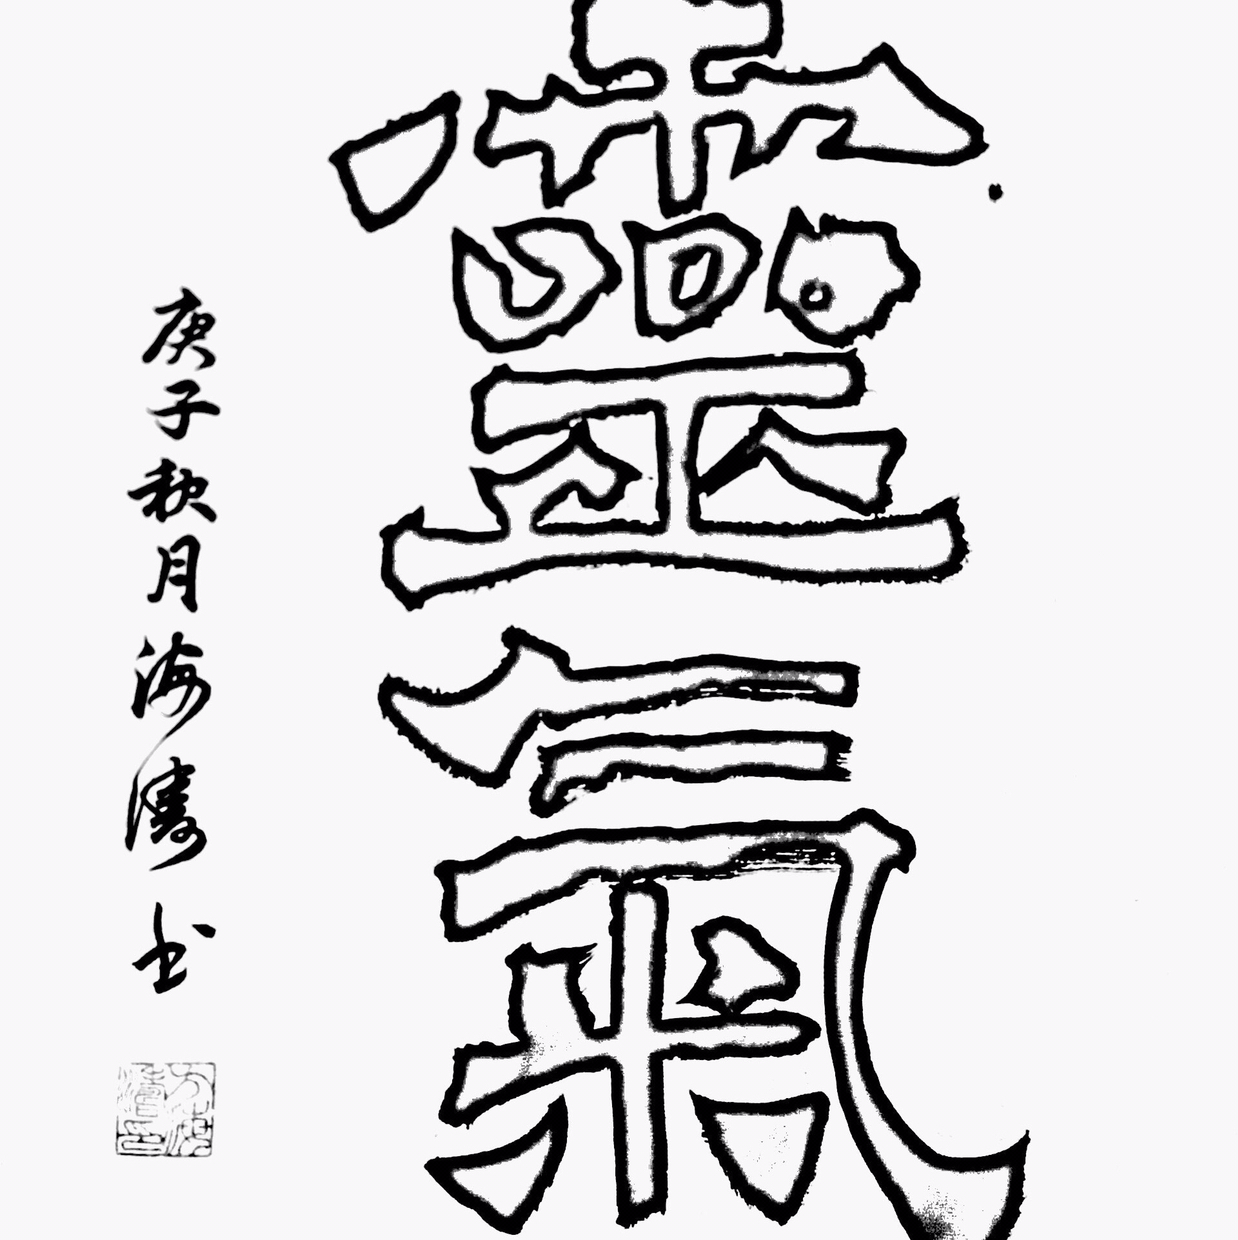 靈氣
庚子秋月海濤书